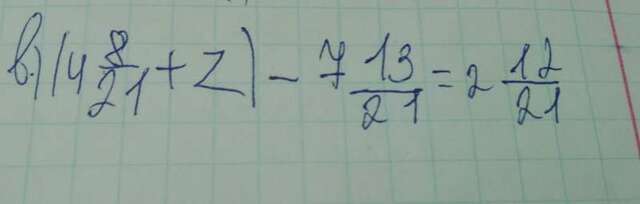 в) (4 8/21 + z) - 7 13/21 = 2 12/21